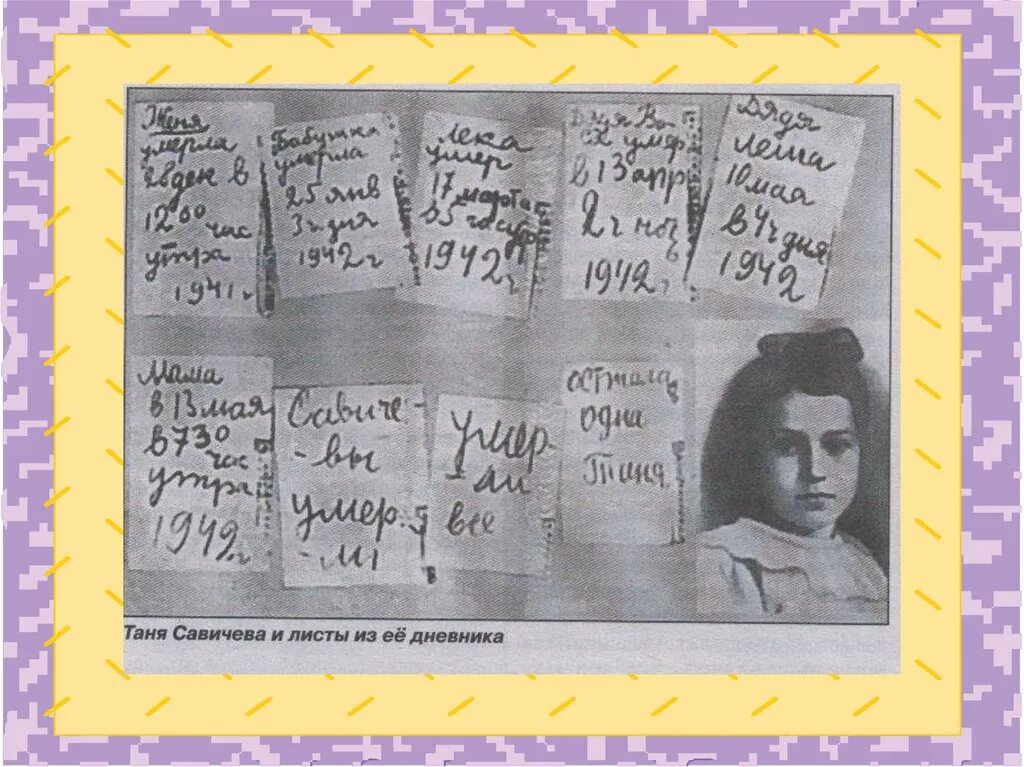 Женя
умерла
28 ден в
12 00 час
утра
1941 г
Бабушка
умерла
25 янв
3ч дня
1942 г
Лека
умер
17 марта
в 5 час утр
1942 г
Дядя Ва-
ся умер
в 13 апр
2 ч ночь
1942 г
Дядя
Леша
10 мая
в 4 ч дня
1942
Мама
в 13 мая
в 7 30
час
утра
1942 г
Савиче-
-вы
умер
-ли
умер-
-ли
все
осталась
одна
Таня
Таня Савичева и листы из её дневника